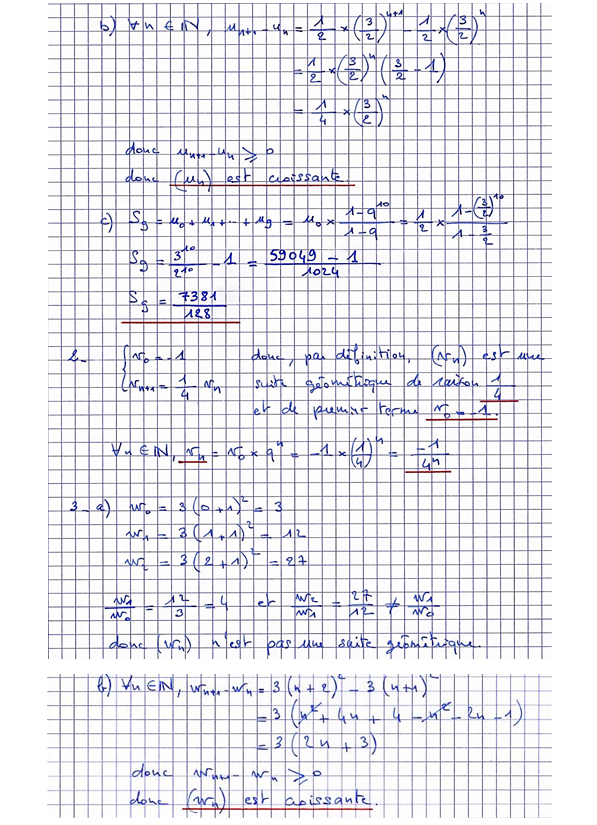 b) ∀n ∈ ℕ, u₁₊₁ - uₙ = 1/2 × (3/2)ⁿ⁺¹ - 1/2 × (3/2)ⁿ
= 1/2 × (3/2)ⁿ (3/2 - 1)
= 1/4 × (3/2)ⁿ
donc uₙ₊₁ - uₙ ⩾ 0
donc (uₙ) est croissante.
c) S₉ = u₀ + u₁ + ... + u₉ = u₀ × (1 - q¹⁰)/(1 - q) = 1/2 × (1 - (3/2)¹⁰)/(1 - 3/2)
S₉ = 3¹⁰/2¹⁰ - 1 = (59049 - 1)/1024
S₉ = 7381/128
2- { v₀ = -1 donc, par définition, (vₙ) est une
vₙ₊₁ = 1/4 vₙ suite géométrique de raison 1/4
et de premier terme v₀ = -1.
∀n ∈ ℕ, vₙ = v₀ × qⁿ = -1 × (1/4)ⁿ = -1/4ⁿ
3- a) w₀ = 3(0+1)² = 3
w₁ = 3(1+1)² = 12
w₂ = 3(2+1)² = 27
w₁/w₀ = 12/3 = 4 et w₂/w₁ = 27/12 ≠ w₁/w₀
donc (wₙ) n'est pas une suite géométrique.
b) ∀n ∈ ℕ, wₙ₊₁ - wₙ = 3(n+2)² - 3(n+1)²
= 3(n² + 4n + 4 - n² - 2n - 1)
= 3(2n + 3)
donc wₙ₊₁ - wₙ ⩾ 0
donc (wₙ) est croissante.